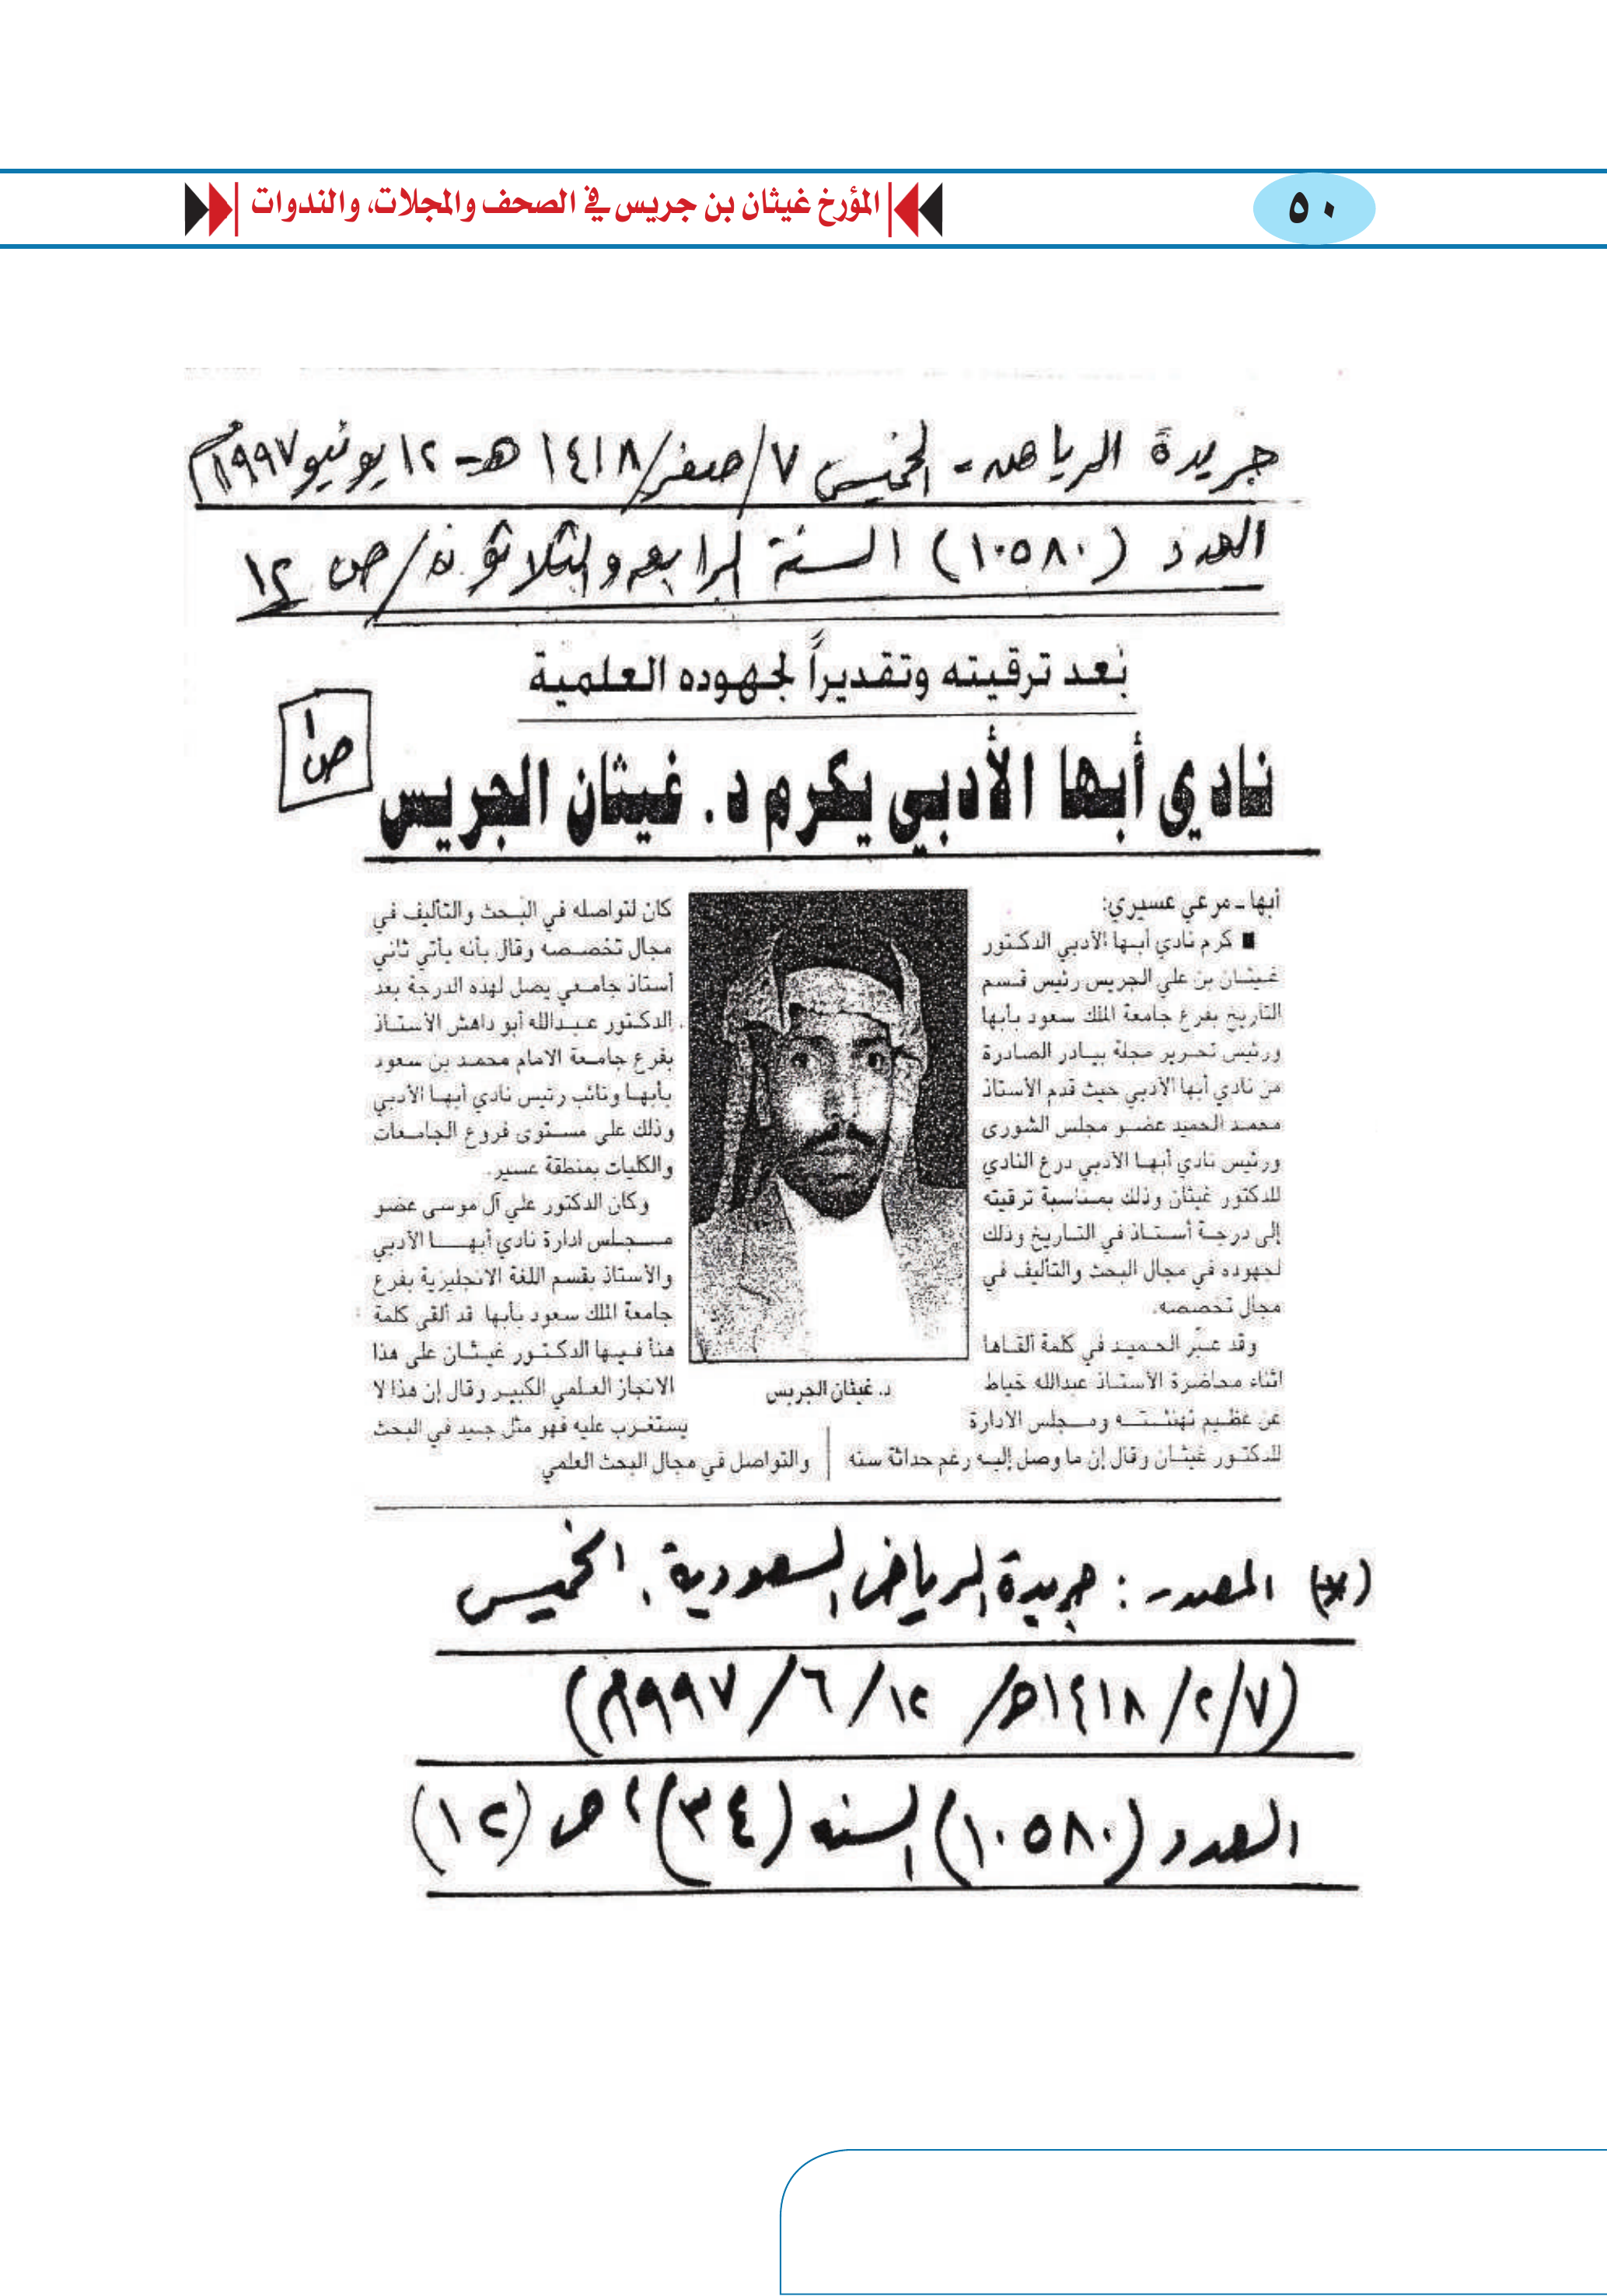 المؤرخ غيثان بن جريس في الصحف والمجلات، والندوات
٥٠
جريدة الرياض - الخميس ٧/صفر/١٤١٨هـ - ١٢ يونيو ١٩٩٧م
العدد (١٠٥٨٠) السنة الرابعة والثلاثون/ص ١٢
بعد ترقيته وتقديراً لجهوده العلمية
ص١
نادي أبها الأدبي يكرم د. غيثان الجريس
أبها ـ مرعي عسيري:
■ كرم نادي أبها الأدبي الدكتور
غيثان بن علي الجريس رئيس قسم
التاريخ بفرع جامعة الملك سعود بأبها
ورئيس تحرير مجلة بيادر الصادرة
من نادي أبها الأدبي حيث قدم الأستاذ
محمد الحميد عضو مجلس الشورى
ورئيس نادي أبها الأدبي درع النادي
للدكتور غيثان وذلك بمناسبة ترقيته
إلى درجة أستاذ في التاريخ وذلك
لجهوده في مجال البحث والتأليف في
مجال تخصصه.
وقد عبّر الحميد في كلمة ألقاها
اثناء محاضرة الأستاذ عبدالله خياط
عن عظيم تهنئته ومجلس الادارة
للدكتور غيثان وقال إن ما وصل إليه رغم حداثة سنه
د. غيثان الجريس
كان لتواصله في البحث والتأليف في
مجال تخصصه وقال بأنه يأتي ثاني
أستاذ جامعي يصل لهذه الدرجة بعد
الدكتور عبدالله أبو داهش الأستاذ
بفرع جامعة الامام محمد بن سعود
بأبها ونائب رئيس نادي أبها الأدبي
وذلك على مستوى فروع الجامعات
والكليات بمنطقة عسير.
وكان الدكتور علي آل موسى عضو
مجلس ادارة نادي أبها الأدبي
والأستاذ بقسم اللغة الانجليزية بفرع
جامعة الملك سعود بأبها قد ألقى كلمة
هنأ فيها الدكتور غيثان على هذا
الانجاز العلمي الكبير وقال إن هذا لا
يستغرب عليه فهو مثل جيد في البحث
والتواصل في مجال البحث العلمي
(*) المصدر : جريدة الرياض السعودية. الخميس
(٧/٢/١٤١٨هـ/ ١٢/٦/١٩٩٧م)
العدد (١٠٥٨٠) السنه (٣٤)، ص (١٢)